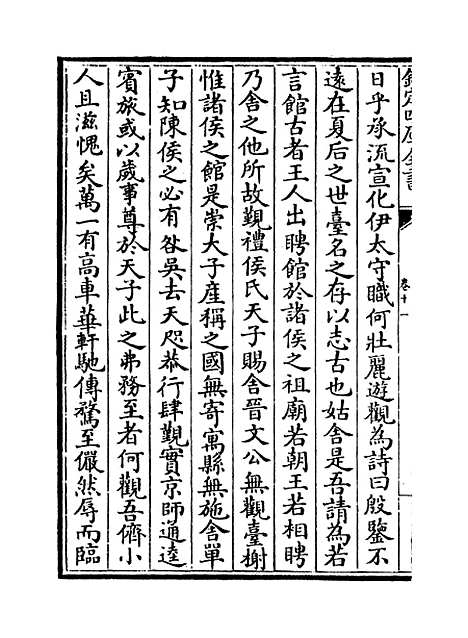 欽定四庫全書
卷十一
日乎承流宣化伊太守職何壯麗遊觀為詩曰殷鑒不
遠在夏后之世臺名之存以志古也姑舍是吾請為若
言館古者王人出聘館於諸侯之祖廟若朝王若相聘
乃舍之他所故覲禮侯氏天子賜舍晉文公無觀臺榭
惟諸侯之館是崇大子產稱之國無寄寓縣無施舍單
子知陳侯之必有咎吳去天咫恭行肆覲實京師通逵
賓旅或以歲事尊於天子此之弗務至者何觀吾儕小
人且滋愧矣萬一有高車華軒馳傳騖至儼然辱而臨